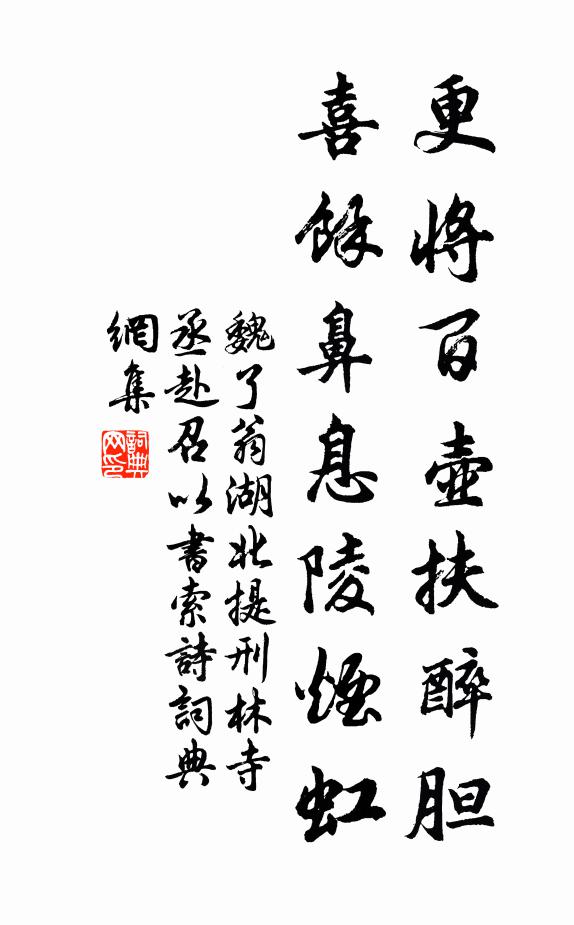 更将百壺扶醉胆
喜餘鼻息陵煙虹
魏了翁湖北提刑林寺
丞赴召以書索詩詞典
網集
詞典網印